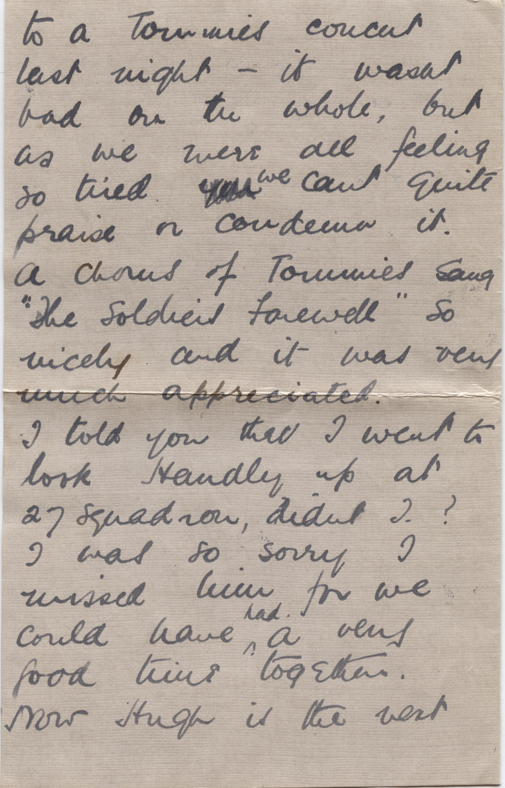 to a Tommies concert
last night - it wasnt
bad on the whole, but
as we were all feeling
so tired we cant quite
praise or condemn it.
A chorus of Tommies sang
"The Soldiers Farewell" so
nicely and it was very
much appreciated.
I told you that I went to
look Handly up at
27 Squadron, didnt I?
I was so sorry I
missed him for we
could have had a very
good time together.
Now Hugh is the next